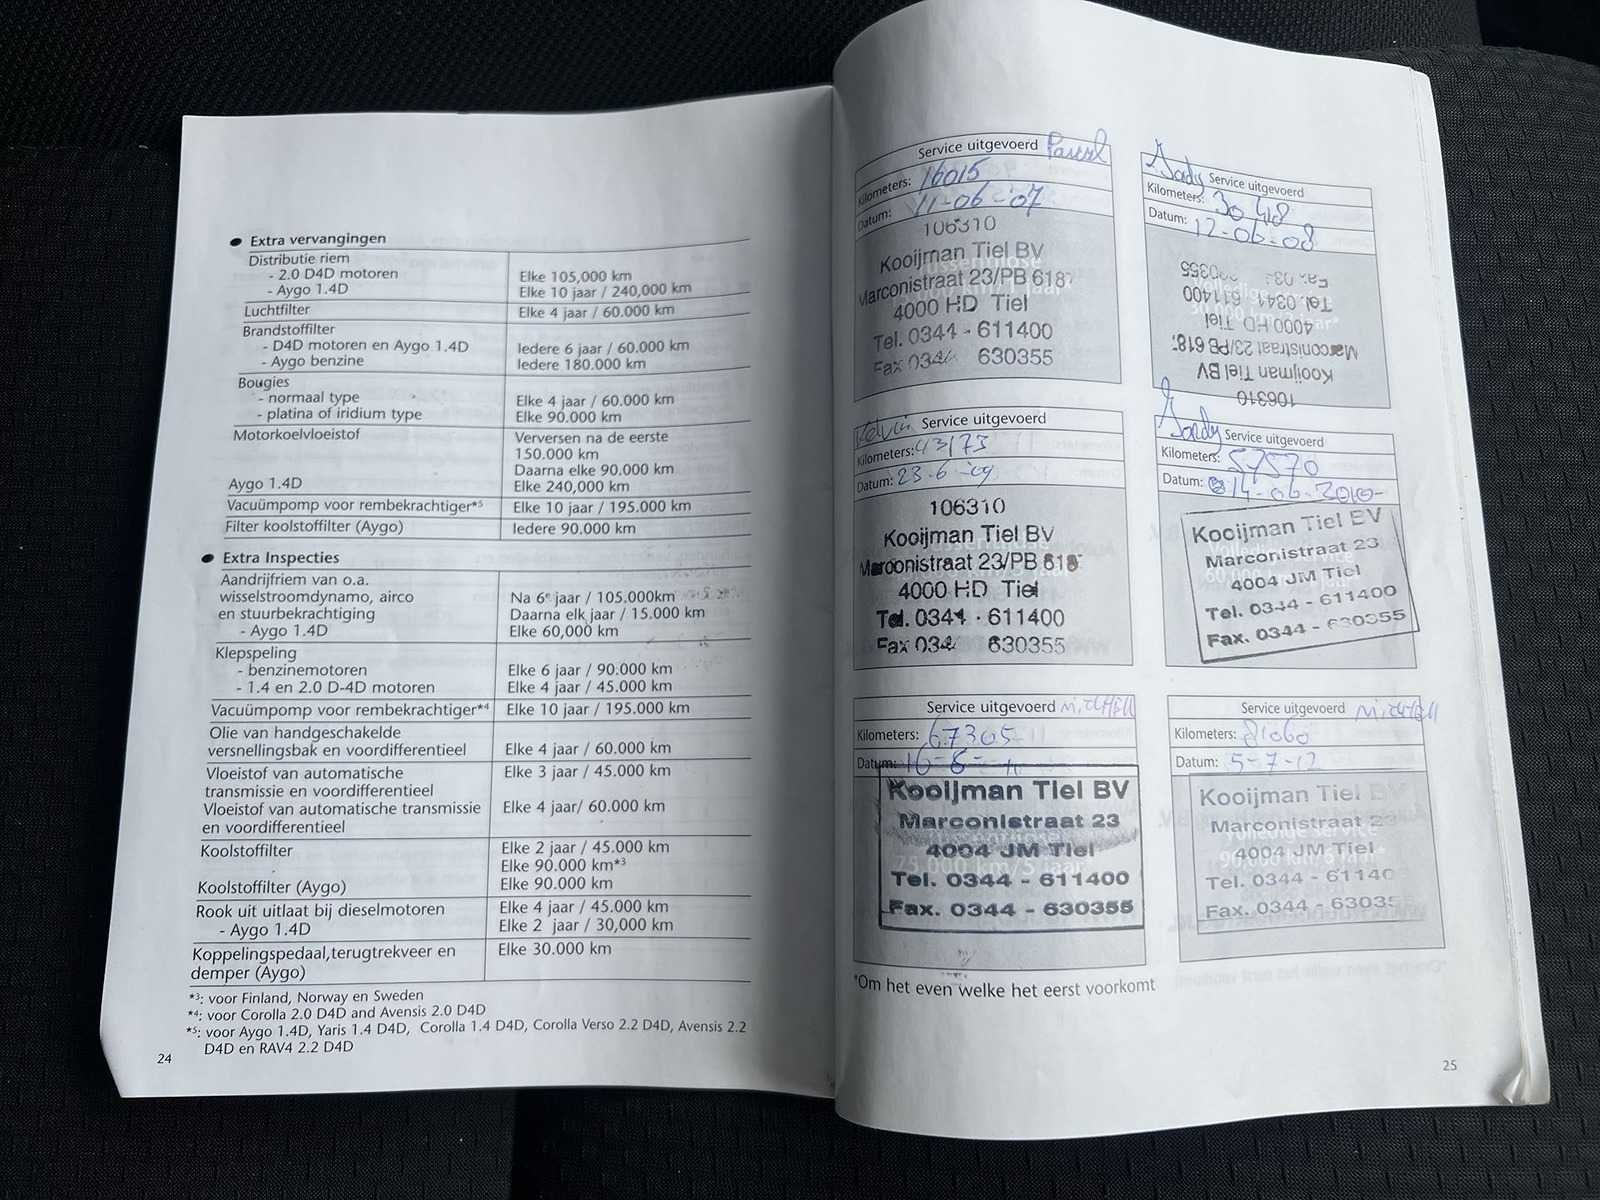 ● Extra vervangingen
Distributie riem
- 2.0 D4D motoren Elke 105,000 km
- Aygo 1.4D Elke 10 jaar / 240,000 km
Luchtfilter Elke 4 jaar / 60.000 km
Brandstoffilter
- D4D motoren en Aygo 1.4D Iedere 6 jaar / 60.000 km
- Aygo benzine Iedere 180.000 km
Bougies
- normaal type Elke 4 jaar / 60.000 km
- platina of iridium type Elke 90.000 km
Motorkoelvloeistof Verversen na de eerste
150.000 km
Daarna elke 90.000 km
Aygo 1.4D Elke 240,000 km
Vacuümpomp voor rembekrachtiger*5 Elke 10 jaar / 195.000 km
Filter koolstoffilter (Aygo) Iedere 90.000 km
● Extra Inspecties
Aandrijfriem van o.a.
wisselstroomdynamo, airco Na 6e jaar / 105.000km
en stuurbekrachtiging Daarna elk jaar / 15.000 km
- Aygo 1.4D Elke 60,000 km
Klepspeling
- benzinemotoren Elke 6 jaar / 90.000 km
- 1.4 en 2.0 D-4D motoren Elke 4 jaar / 45.000 km
Vacuümpomp voor rembekrachtiger*4 Elke 10 jaar / 195.000 km
Olie van handgeschakelde
versnellingsbak en voordifferentieel Elke 4 jaar / 60.000 km
Vloeistof van automatische Elke 3 jaar / 45.000 km
transmissie en voordifferentieel
Vloeistof van automatische transmissie Elke 4 jaar/ 60.000 km
en voordifferentieel
Koolstoffilter Elke 2 jaar / 45.000 km
Elke 90.000 km*3
Koolstoffilter (Aygo) Elke 90.000 km
Rook uit uitlaat bij dieselmotoren Elke 4 jaar / 45.000 km
- Aygo 1.4D Elke 2 jaar / 30,000 km
Koppelingspedaal,terugtrekveer en Elke 30.000 km
demper (Aygo)
*3: voor Finland, Norway en Sweden
*4: voor Corolla 2.0 D4D and Avensis 2.0 D4D
*5: voor Aygo 1.4D, Yaris 1.4 D4D, Corolla 1.4 D4D, Corolla Verso 2.2 D4D, Avensis 2.2
D4D en RAV4 2.2 D4D
24
Service uitgevoerd Pascal
Kilometers: 16015
Datum: 11-06-07
106310
Kooijman Tiel BV
Marconistraat 23/PB 618
4000 HD Tiel
Tel. 0344 - 611400
Fax 0344 630355
Service uitgevoerd
Kilometers: 30418
Datum: 12-06-08
106310
Kooijman Tiel BV
Marconistraat 23/PB 618
4000 HD Tiel
Tel. 0344 - 611400
Service uitgevoerd
Kilometers: 43173
Datum: 23-6-09
106310
Kooijman Tiel BV
Marconistraat 23/PB 618
4000 HD Tiel
Tel. 0344 - 611400
Fax 034 630355
Service uitgevoerd
Kilometers: 57570
Datum: 14-06-2010-
Kooijman Tiel BV
Marconistraat 23
4004 JM Tiel
Tel. 0344 - 611400
Fax. 0344 - 630355
Service uitgevoerd MitCHEll
Kilometers: 67305
Datum: 16-6-11
Kooijman Tiel BV
Marconistraat 23
4004 JM Tiel
75.000 km/5 jaar
Tel. 0344 - 611400
Fax. 0344 - 630355
Service uitgevoerd MitCHEll
Kilometers: 81060
Datum: 5-7-12
Kooijman Tiel BV
Marconistraat 23
4004 JM Tiel
Tel. 0344 - 61140
Fax. 0344 - 63035
*Om het even welke het eerst voorkomt
25